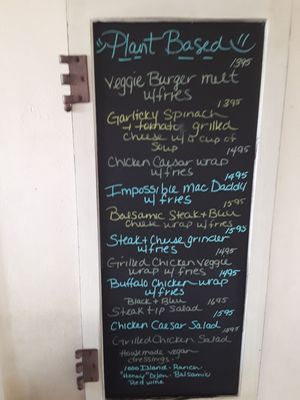 Plant Based
1395
Veggie Burger melt
w/fries
1395
Garlicky Spinach
+ tomato grilled
cheese w/a cup of
Soup
1495
Chicken Caesar wrap
w/fries
1495
Impossible Mac Daddy
w/fries
1595
Balsamic Steak + Bleu
cheese wrap w/fries
1595
Steak + Cheese grinder
w/fries
1495
Grilled Chicken veggie
wrap w/ fries
1495
Buffalo Chicken wrap
w/fries
Black + Bleu 1695
Steak tip Salad
1595
Chicken Caesar Salad
1595
Grilled Chicken Salad
Housemade vegan
dressings -
1000 Island - Ranch -
"Honey" Dijon - Balsamic
Red wine